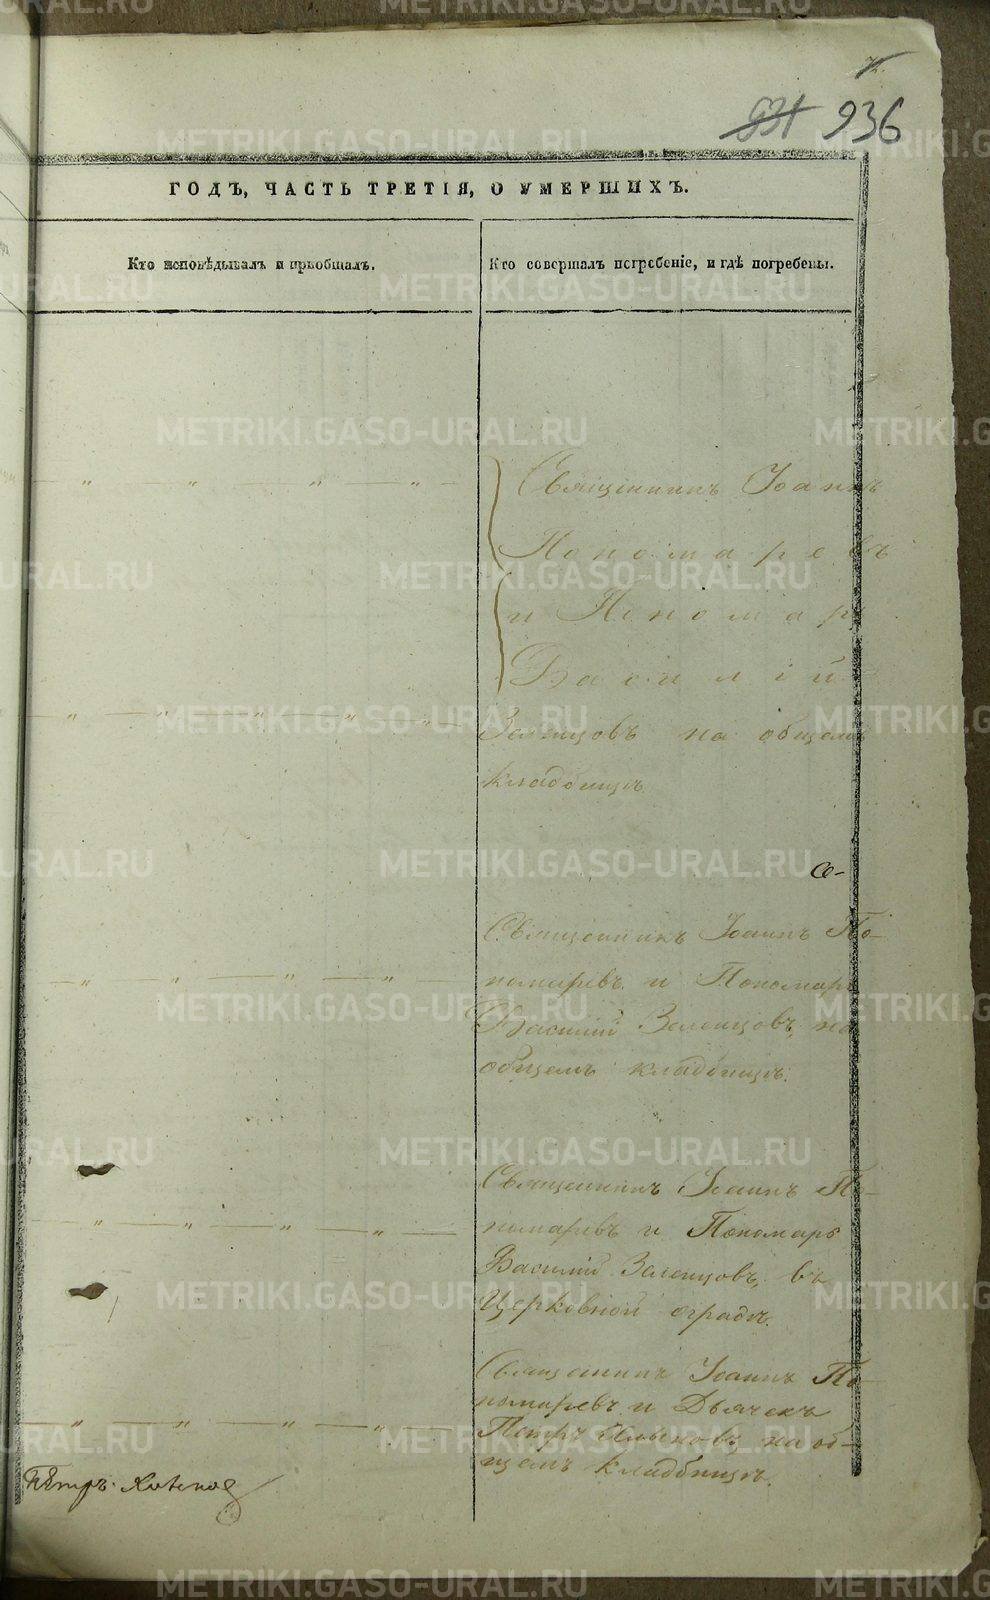 931 936
ГОДЪ, ЧАСТЬ ТРЕТІЯ, О УМЕРШИХЪ.
Кто исповѣдывалъ и пріобщалъ.
Кто совершалъ погребеніе, и гдѣ погребены.
Священникъ Іоаннъ
Пономаревъ
и Пономарь
Василій
Зеленцовъ на общемъ
кладбищѣ
Священникъ Іоаннъ По-
номаревъ и Пономарь
Василій Зеленцовъ, на
общемъ кладбищѣ.
Священникъ Іоаннъ По-
номаревъ и Пономарь
Василій Зеленцовъ, въ
Церковной оградѣ.
Священникъ Іоаннъ По-
номаревъ и Дьячекъ
Петръ на об-
щемъ кладбищѣ.
Петръ
METRIKI.GASO-URAL.RU